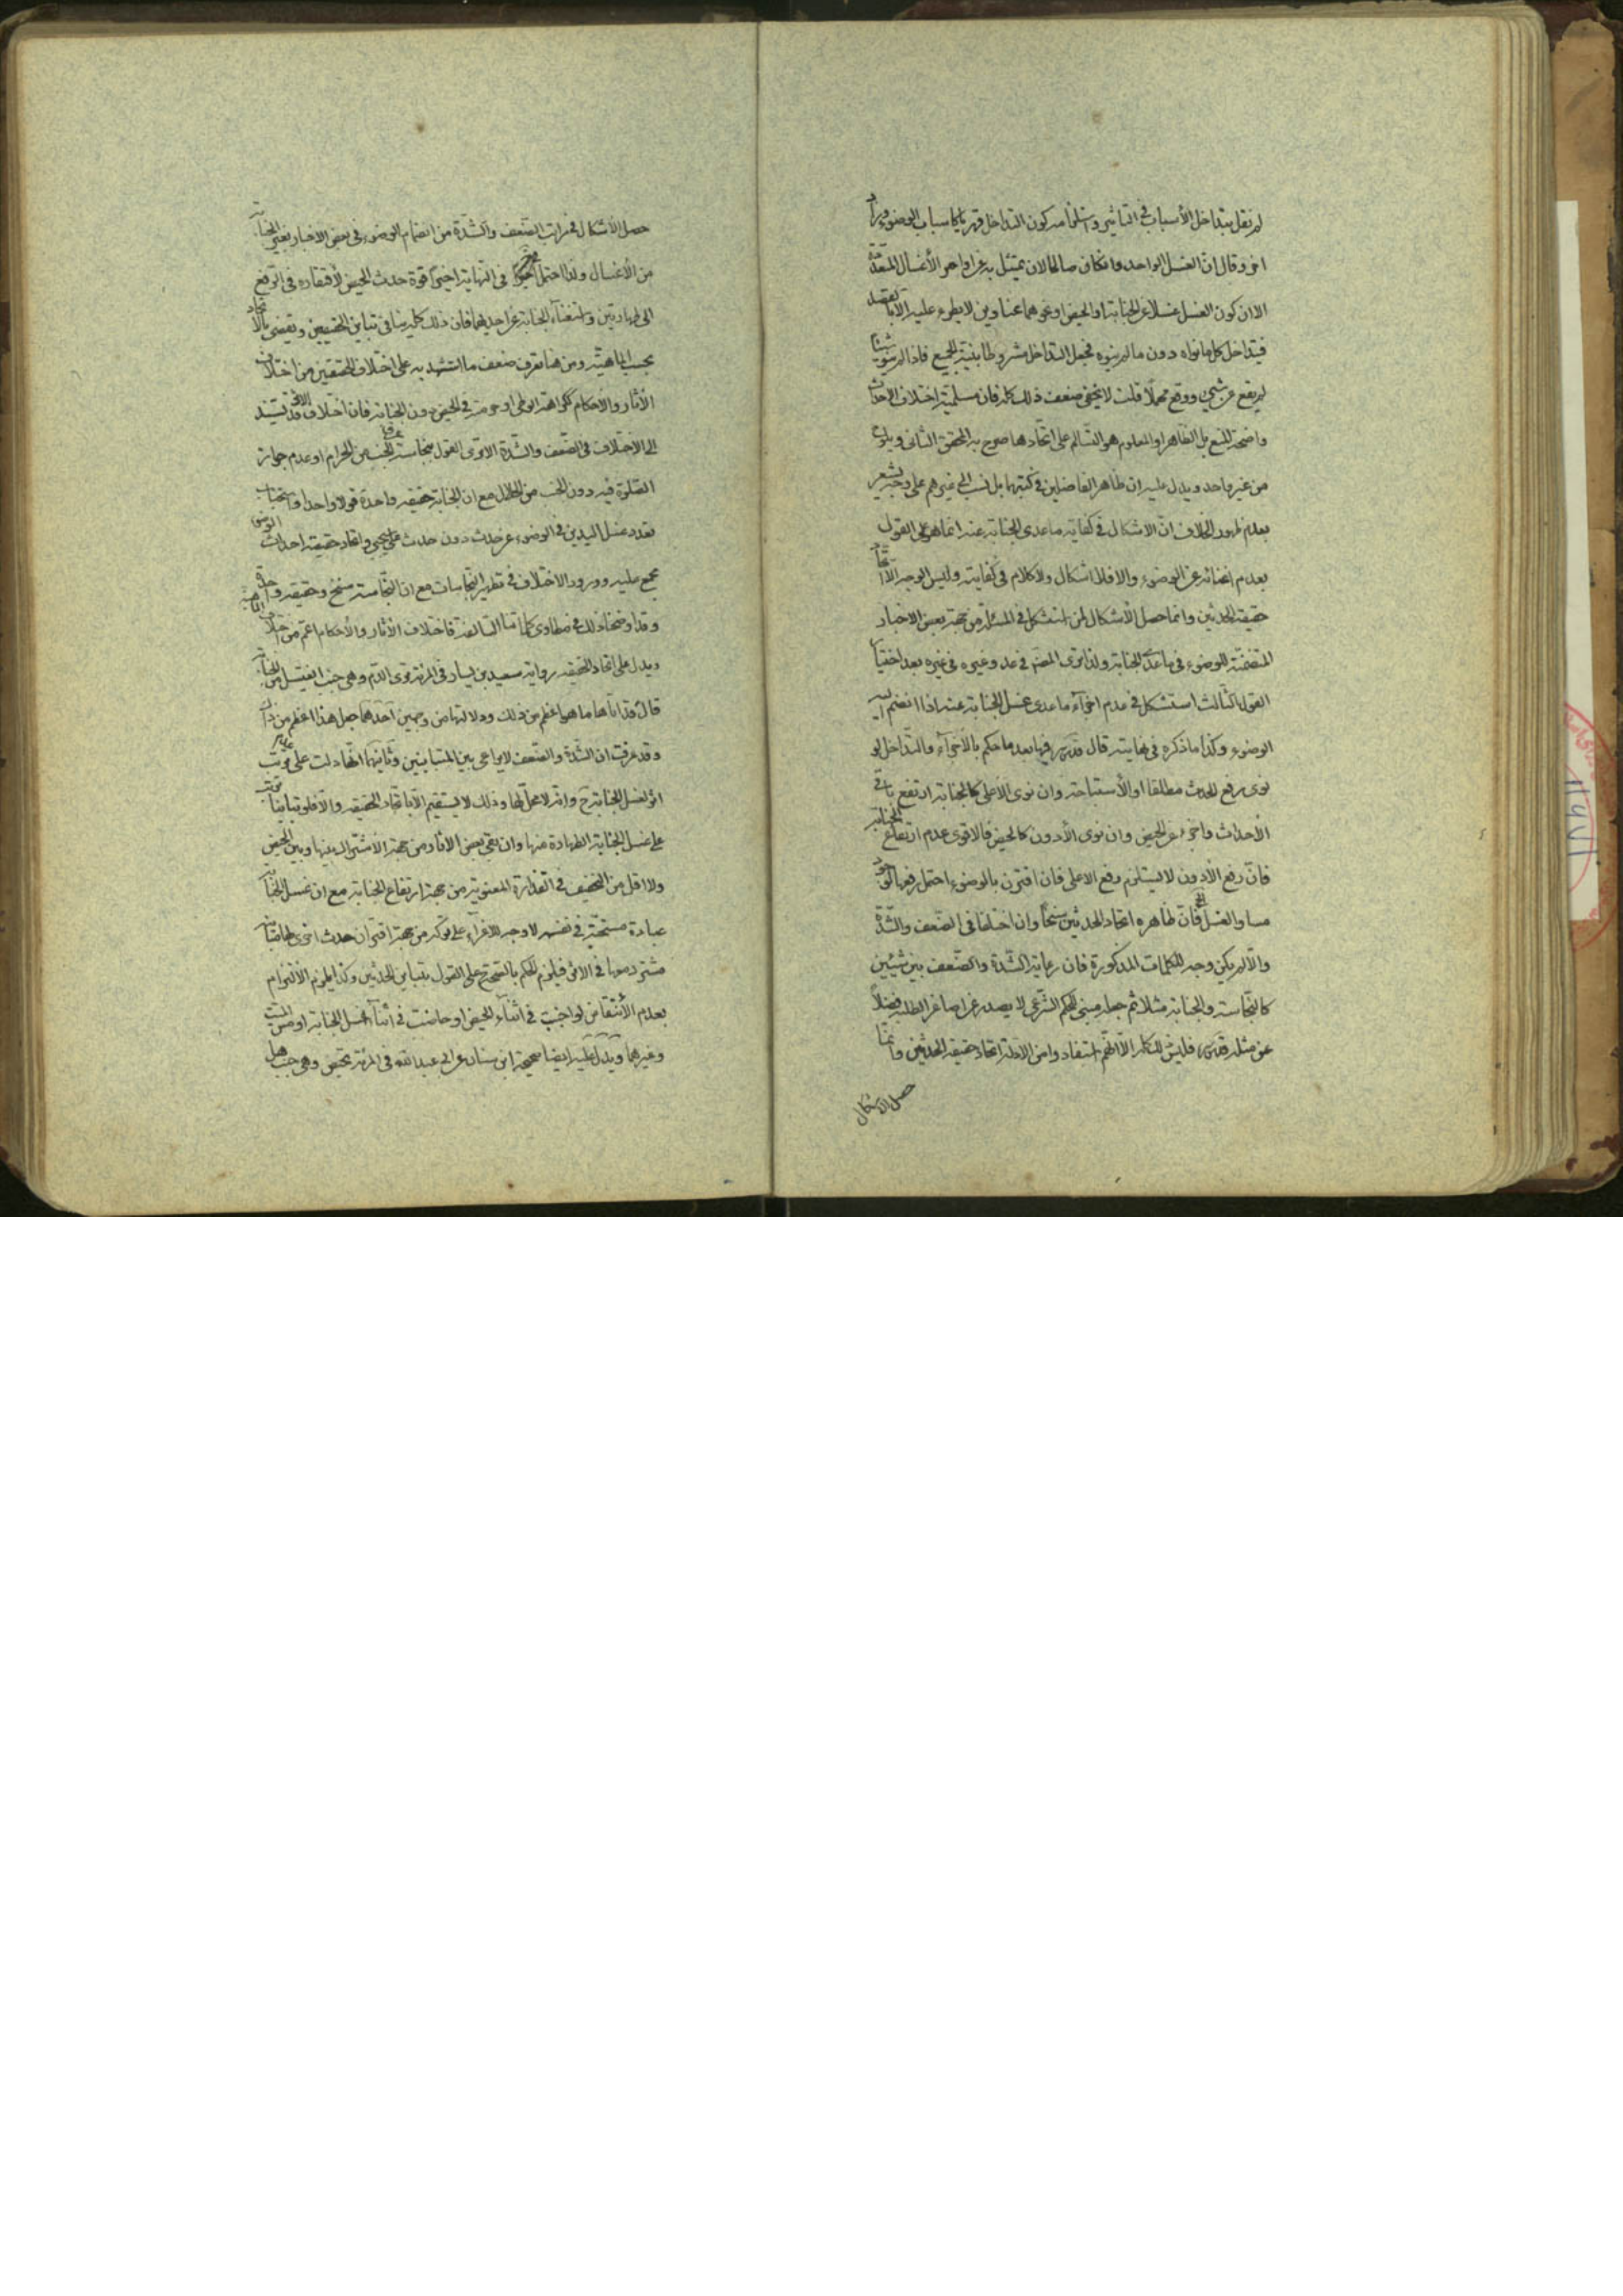 لم نقل بتداخل الأسباب في التأثير واستلزامه كون التداخل قهريا كاسباب الوضوء
اخر وقال ان الغسل الواحد وانكان صالحا لان يمتثل به عن اوامر الأغسال المتعددة
الا ان كون الغسل غسلا عن الجنابة او الحيض او نحوهما عناوين لا يطرء عليه الا بالقصد
فيتداخل كل ما نواه دون ما لم ينوه فجعل التداخل مشروطا بنية الجميع فاذا لم ينو شيئا
لم يقع عن شيء ووقع مهملا قلت لا يخفى ضعف ذلك كله فان مسلمية اختلاف الاحداث
واضحة المنع بل الظاهر او المعلوم هو التسالم على اتحادها صرح به المحقق الثاني
من غير واحد ويدل عليه ان ظاهر الفاضلين في كتبهما بل نسب الى غيرهم على وجه يشعر
بعدم ظهور الخلاف ان الاشكال في كفاية ما عدى الجنابة عنه انما هو على القول
بعدم اغنائه عن الوضوء والا فلا اشكال ولا كلام في كفايته وليس الوجه الا اتحاد
حقيقة الحدثين وانما حصل الأشكال لمن استشكل في المسئلة من جهة بعض الاخبار
المتضمنة للوضوء في ما عدى الجنابة ولذا ترى المصنف في عد وغيره في غيره بعد اختيار
القول الثالث استشكل في عدم اجزاء ما عدى غسل الجنابة عنه اذا انضم اليه
الوضوء وكذا ما ذكره في نهايته قال قدس سره فيها بعد ما حكم بالأجزاء والتداخل لو
نوى رفع الحدث مطلقا او الأستباحة وان نوى الأعلى كالجنابة ارتفع باقي
الأحداث واجزء عن الحيض وان نوى الأدون كالحيض فالاقوى عدم ارتفاع الجنابة
فان رفع الأدون لا يستلزم رفع الاعلى فان اقترن بالوضوء احتمل رفعها
مساو الغسل الخ فان ظاهره اتحاد الحدثين سنخا وان اختلفا في الضعف والشدة
والا لم يكن وجه للكلمات المذكورة فان رعاية الشدة والضعف بين شيئين
كالنجاسة والجنابة مثلا ثم جعله مبنى الحكم الشرعي لا يصدر عن اصاغر الطلبة فضلا
عن مثله قدس سره فليس ذلك الا انهم استفادوا من الادلة اتحاد حقيقة الحدثين وانما
حصل الاشكال
حصل الأشكال في مراتب الضعف والشدة من انضمام الوضوء في بعض الاخبار بغير الجنابة
من الأغسال ولذا احتمل في النهاية اخيرا قوة حدث الحيض لأفتقاره في الرفع
الى طهارتين واستغناء الجنابة عن احديهما فان ذلك كله ينافي تباين الحقيقتين ويقضي بالاتحاد
بحسب الماهية ومن هنا تعرف ضعف ما استشهد به على اختلاف الحقيقتين من اختلاف
الأثار والاحكام ككراهة الوطى او حرمته في الحيض دون الجنابة فان اختلاف الاثر قد يستند
الى الاختلاف في الضعف والشدة الا ترى القول بنجاسة عرق الجنب من الحرام او عدم جواز
الصلوة فيه دون الجنب من الحلال مع ان الجنابة حقيقة واحدة قولا واحدا واستحباب
تعدد غسل اليدين في الوضوء عن حدث دون حدث على ما يجيء واتحاد حقيقة احداث الوضوء
مجمع عليه وورود الاختلاف في تطهير النجاسات مع ان النجاسة سنخ وحقيقة واحدة
وقد اوضحنا ذلك في مطاوى كلماتنا السالفة فاختلاف الأثار والأحكام اعم من اختلاف الماهية
ويدل على اتحاد الحقيقة رواية سعيد بن يسار في المرئة ترى الدم وهي جنب اتغتسل من الجنابة
قال قد اتاها ما هو اعظم من ذلك ودلالتها من وجهين احدهما جعل هذا اعظم من ذاك
وقد عرفت ان الشدة والضعف لا يراعى بين المتباينين وثانيهما انها دلت على عدم ترتب
اثر لغسل الجنابة ح وانه لا محل لها وذلك لا يستقيم الا باتحاد الحقيقة والا فلو تباينا
على غسل الجنابة الطهارة منها وان بقي بعض الاثار من جهة الاشتراك بينها وبين الحيض
ولا اقل من التخفيف في القذارة المعنوية من جهة ارتفاع الجنابة مع ان غسل الجنابة
عبادة مستحبة في نفسه لا وجه للاغراء على تركه من جهة اقتران حدث اخرى
مشترك معها في الاثر فيلزم الحكم بالصحة على القول بتباين الحدثين وكذا يلزم الألتزام
بعدم الأنتقاض لو اجنبت في اثناء الحيض او حاضت في اثناء غسل الجنابة او مس الميت
وغيرهما ويدل عليه ايضا صحيحة ابن سنان عن ابي عبد الله في المرئة تحيض وهي جنب هل